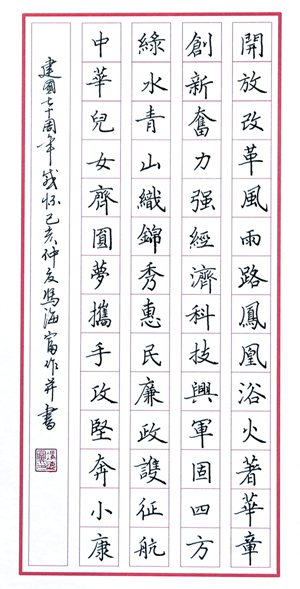 開放改革風雨路鳳凰浴火著華章
創新奮力强經濟科技興軍固四方
綠水青山織錦秀惠民廉政護征航
中華兒女齊圓夢攜手攻堅奔小康
建國七十周年感怀己亥仲夏馮海富作并書